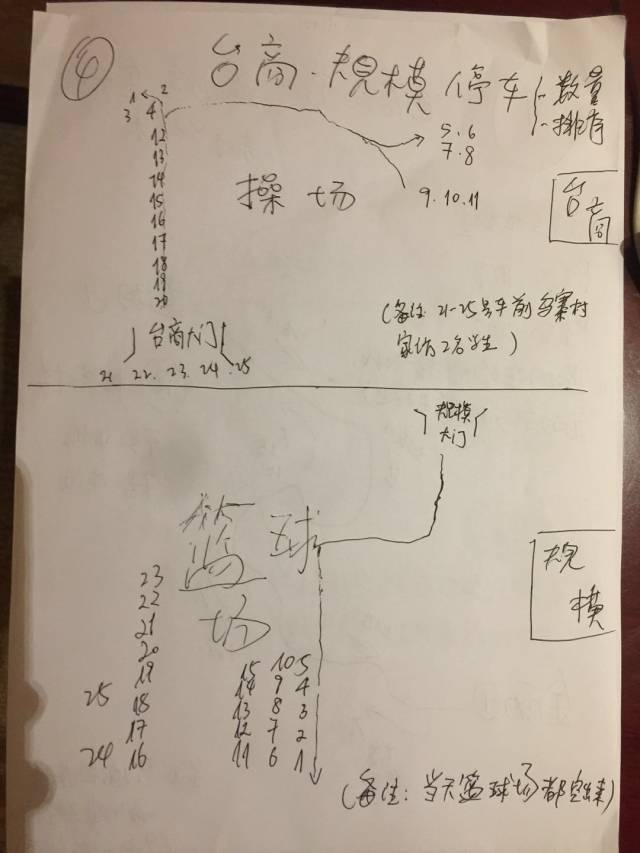 ④
台商·规模 停车
数量
排序
1 2
3 4
12
13
14
15
16
17
18
19
20
5.6
7.8
9.10.11
操场
台商
(备注: 21-25号车前乌寨村
家访2名学生)
台商大门
21 22. 23. 24. 25
规模
大门
篮球
场
规
模
23
22
21
20
19
25 18
17
24 16
15 10 5
14 9 4
13 8 3
12 7 2
11 6 1
(备注: 当天篮球场都空出来)